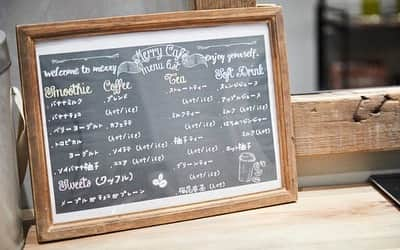 Merry Cafe
menu list
welcome to merry
enjoy yourself.
Smoothie
バナナミルク
バナナチョコ
ベリーヨーグルト
トロピカル
ヨーグルト
ソイバナナ柚子
Sweets (ワッフル)
メープル or チョコ or プレーン
Coffee
・ブレンド
(hot/ice)
・カフェラテ
(hot/ice)
・ソイラテ (hot/ice)
・ココア (hot/ice)
Tea
・ストレートティー
(hot/ice)
・ミルクティー
(hot/ice)
・柚子ティー
(hot/ice)
・グリーンティー
(hot)
(hot)
Soft Drink
・オレンジジュース
・アップルジュース
・はちみつジンジャー
ミルク(hot)
・ホット柚子